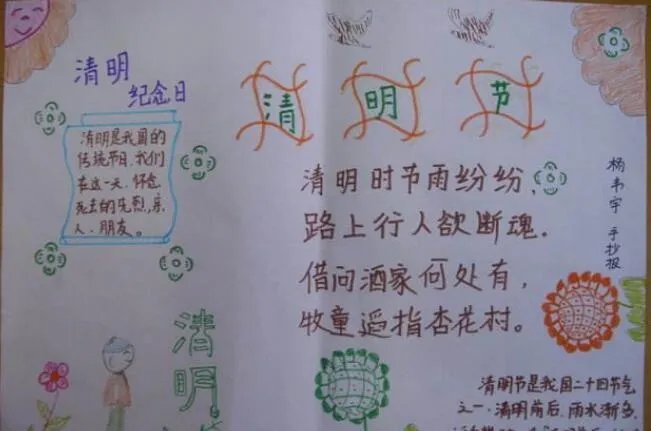 清明
纪念日
清明是我国的
传统节日,我们
在这一天,怀念
死去的先烈,亲
人、朋友。
清明节
清明时节雨纷纷,
路上行人欲断魂.
借问酒家何处有,
牧童遥指杏花村。
杨韦宇 手抄报
清明
清明节是我国二十四节气
之一.清明前后,雨水渐多,